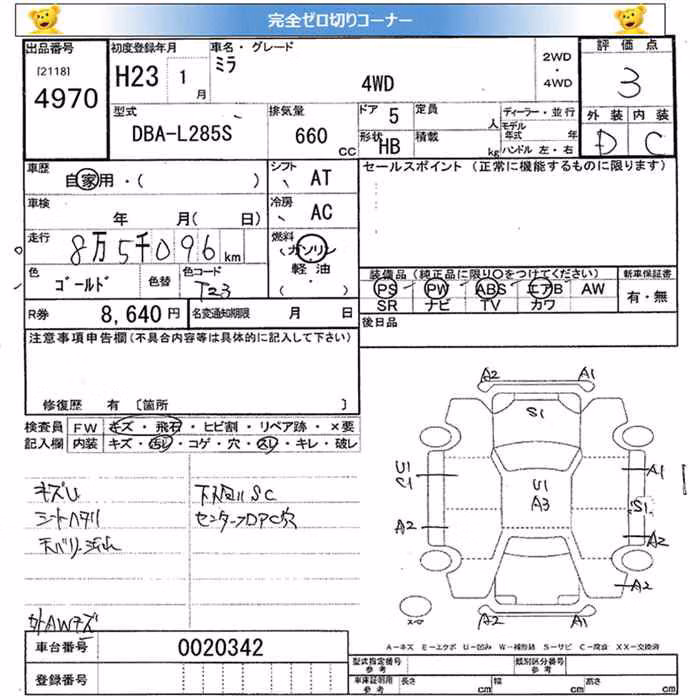 完全ゼロ切りコーナー
出品番号
[2118]
4970
初度登録年月
H23 1月
車名・グレード
ミラ
4WD
2WD
・
4WD
評価点
3
外装 内装
D C
型式
DBA-L285S
排気量
660 CC
ドア 5
定員 人
形状 HB
積載 kg
ディーラー・並行
モデル年式 年
ハンドル 左・右
車歴
自家用・( )
シフト
AT
車検
年 月( 日)
冷房
AC
走行
8万5千096 km
燃料
ガソリン
軽油
・( )
色
ゴールド
色替
色コード
T23
R券 8,640円
名変通知期限 月 日
セールスポイント (正常に機能するものに限ります)
装備品 (純正品に限り〇をつけてください)
PS PW ABS エアB AW
SR ナビ TV カワ
新車保証書
有・無
後日品
注意事項申告欄(不具合内容等は具体的に記入して下さい)
修復歴 有 [箇所 ]
検査員記入欄
FW キズ・飛石・ヒビ割・リペア跡・×要
内装 キズ・汚レ・コゲ・穴・スレ・キレ・破レ
キズU
シートヘタリ
天バリ汚れ
下回りSC
センターフロアC穴
外AWキズ
A2 A1
S1
U1
C1
U1
A3
A1
S1
A2
A2
A2
A2 A1
A=キズ E=エクボ U=凹み W=補修跡 S=サビ C=腐食 XX=交換済
車台番号 0020342
登録番号
型式指定番号
参考
類別区分番号
参考
車庫証明用
参考
長さ cm 幅 cm 高さ cm